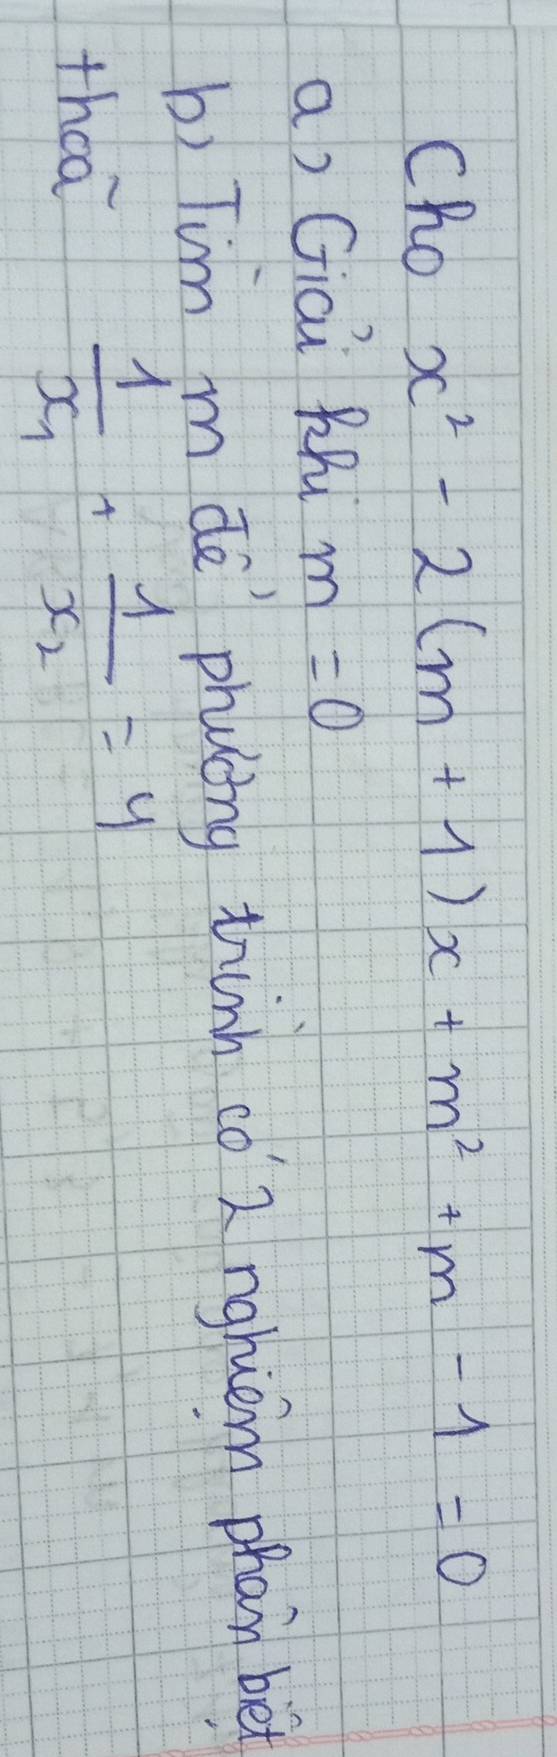 Cho x² - 2(m + 1)x + m² + m - 1 = 0
a, Giải khi m = 0
b, Tìm m để phương trình có 2 nghiệm phân biệt
thoã 1/x₁ + 1/x₂ = 4